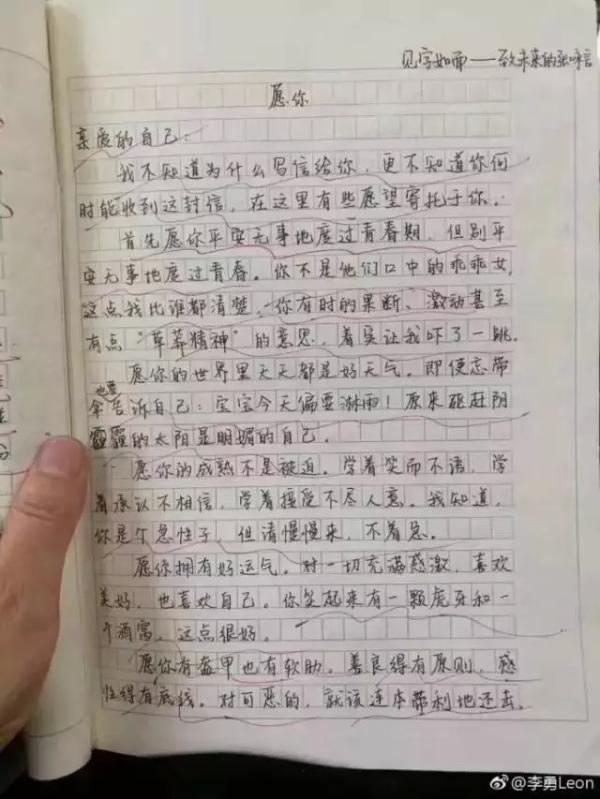 见字如面——致未来的张咪信
愿你
亲爱的自己：
我不知道为什么写信给你，更不知道你何
时能收到这封信，在这里有些愿望寄托于你.
首先愿你平安无事地度过青春期，但别平
安无事地度过青春。你不是他们口中的乖乖女，
这点我比谁都清楚，你有时的果断、激动甚至
有点“草莽精神”的意思，着实让我吓了一跳。
愿你的世界里天天都是好天气。即使忘带
伞也要告诉自己：宝宝今天偏要淋雨！原来驱赶阴
霾的太阳是明媚的自己。
愿你的成熟不是被迫。学着笑而不语，学
着承认不相信，学着接受不尽人意。我知道，
你是个急性子，但请慢慢来，不着急。
愿你拥有好运气。对一切充满感激，喜欢
美好，也喜欢自己。你笑起来有一颗虎牙和一
个酒窝，这点很好。
愿你有盔甲也有软肋，善良得有原则，感
性得有底线。对可恶的，就该连本带利地还击。
@李勇Leon